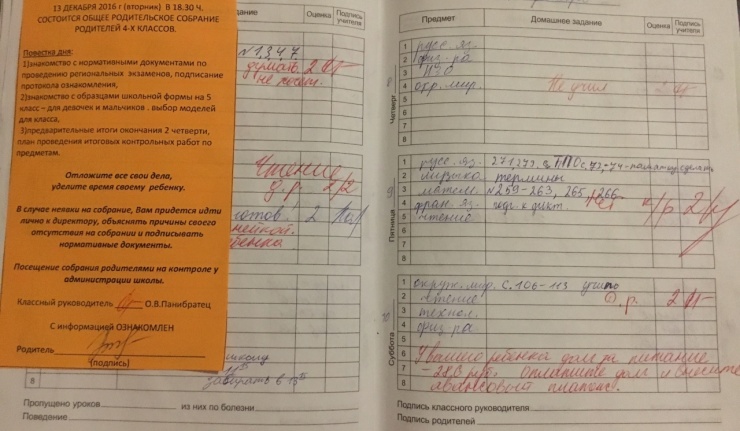 13 ДЕКАБРЯ 2016 г (вторник) В 18.30 Ч.
СОСТОИТСЯ ОБЩЕЕ РОДИТЕЛЬСКОЕ СОБРАНИЕ
РОДИТЕЛЕЙ 4-Х КЛАССОВ.
Повестка дня:
1)знакомство с нормативными документами по
проведению региональных экзаменов, подписание
протокола ознакомления,
2)знакомство с образцами школьной формы на 5
класс – для девочек и мальчиков . выбор моделей
для класса,
3)предварительные итоги окончания 2 четверти,
план проведения итоговых контрольных работ по
предметам.
Отложите все свои дела,
уделите время своему ребенку.
В случае неявки на собрание, Вам придется идти
лично к директору, объяснять причины своего
отсутствия на собрании и подписывать
нормативные документы.
Посещение собрания родителями на контроле у
администрации школы.
Классный руководитель О.В.Панибратец
С информацией ОЗНАКОМЛЕН
Родитель
(подпись)
задание Оценка Подпись учителя
№1347
думать 2
не
Чтение
д.р. 2/2
2
школу
забирать в 13
8
Пропущено уроков из них по болезни
Поведение
Предмет Домашнее задание Оценка Подпись учителя
Четверг
1 русс. яз.
2 физ-ра
3 ИЗО
4 окр. мир. Не учил 2
5
6
7
8
Пятница
9
1 русс. яз. 271, 273, с. 73-74
2 музыка термины
3 матем. №259-263, 265, 266
4 фран. яз. подг. к дикт. к/р 2
5 чтение
6
7
8
Суббота
10
1 окруж. мир. с. 106-113 учить
2 чтение д.р. 2
3 технол.
4 физ-ра
5
6 У вашего ребёнка долг за питание
7 оплатите долг и внесите
8 авансовый платёж.
Подпись классного руководителя
Подпись родителей